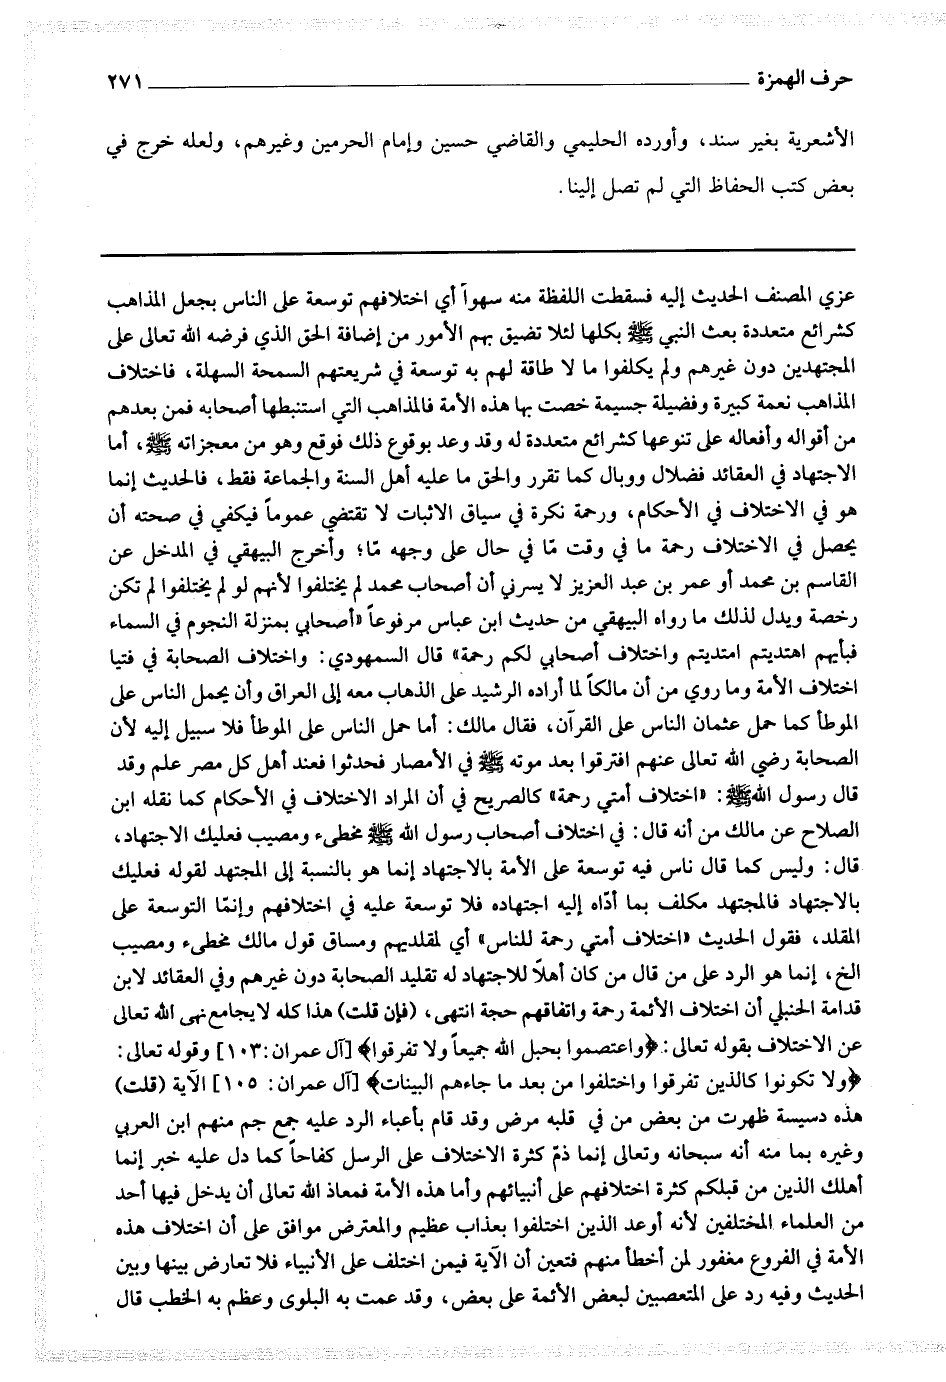 حرف الهمزة ٢٧١
الأشعرية بغير سند، وأورده الحليمي والقاضي حسين وإمام الحرمين وغيرهم، ولعله خرج في
بعض كتب الحفاظ التي لم تصل إلينا.
عزي المصنف الحديث إليه فسقطت اللفظة منه سهواً أي اختلافهم توسعة على الناس بجعل المذاهب
كشرائع متعددة بعث النبي ﷺ بكلها لئلا تضيق بهم الأمور من إضافة الحق الذي فرضه الله تعالى على
المجتهدين دون غيرهم ولم يكلفوا ما لا طاقة لهم به توسعة في شريعتهم السمحة السهلة، فاختلاف
المذاهب نعمة كبيرة وفضيلة جسيمة خصت بها هذه الأمة فالمذاهب التي استنبطها أصحابه فمن بعدهم
من أقواله وأفعاله على تنوعها كشرائع متعددة له وقد وعد بوقوع ذلك فوقع وهو من معجزاته ﷺ، أما
الاجتهاد في العقائد فضلال ووبال كما تقرر والحق ما عليه أهل السنة والجماعة فقط، فالحديث إنما
هو في الاختلاف في الأحكام، ورحمة نكرة في سياق الاثبات لا تقتضي عموماً فيكفي في صحته أن
يحصل في الاختلاف رحمة ما في وقت مّا في حال على وجهه مّا؛ وأخرج البيهقي في المدخل عن
القاسم بن محمد أو عمر بن عبد العزيز لا يسرني أن أصحاب محمد لم يختلفوا لأنهم لو لم يختلفوا لم تكن
رخصة ويدل لذلك ما رواه البيهقي من حديث ابن عباس مرفوعاً «أصحابي بمنزلة النجوم في السماء
فبأيهم اهتديتم امتديتم واختلاف أصحابي لكم رحمة» قال السمهودي: واختلاف الصحابة في فتيا
اختلاف الأمة وما روي من أن مالكاً لما أراده الرشيد على الذهاب معه إلى العراق وأن يحمل الناس على
الموطأ كما حمل عثمان الناس على القرآن، فقال مالك: أما حمل الناس على الموطأ فلا سبيل إليه لأن
الصحابة رضي الله تعالى عنهم افترقوا بعد موته ﷺ في الأمصار فحدثوا فعند أهل كل مصر علم وقد
قال رسول اللهﷺ: «اختلاف أمتي رحمة» كالصريح في أن المراد الاختلاف في الأحكام كما نقله ابن
الصلاح عن مالك من أنه قال: في اختلاف أصحاب رسول الله ﷺ مخطىء ومصيب فعليك الاجتهاد،
قال: وليس كما قال ناس فيه توسعة على الأمة بالاجتهاد إنما هو بالنسبة إلى المجتهد لقوله فعليك
بالاجتهاد فالمجتهد مكلف بما أدّاه إليه اجتهاده فلا توسعة عليه في اختلافهم وإنمّا التوسعة على
المقلد، فقول الحديث «اختلاف أمتي رحمة للناس» أي لمقلديهم ومساق قول مالك مخطىء ومصيب
الخ، إنما هو الرد على من قال من كان أهلاً للاجتهاد له تقليد الصحابة دون غيرهم وفي العقائد لابن
قدامة الحنبلي أن اختلاف الأئمة رحمة واتفاقهم حجة انتهى، (فإن قلت) هذا كله لا يجامع نهى الله تعالى
عن الاختلاف بقوله تعالى: ﴿واعتصموا بحبل الله جميعاً ولا تفرقوا﴾ [آل عمران: ١٠٣] وقوله تعالى:
﴿ولا تكونوا كالذين تفرقوا واختلفوا من بعد ما جاءهم البينات﴾ [آل عمران: ١٠٥] الآية (قلت)
هذه دسيسة ظهرت من بعض من في قلبه مرض وقد قام بأعباء الرد عليه جمع جم منهم ابن العربي
وغيره بما منه أنه سبحانه وتعالى إنما ذمّ كثرة الاختلاف على الرسل كفاحاً كما دل عليه خبر إنما
أهلك الذين من قبلكم كثرة اختلافهم على أنبيائهم وأما هذه الأمة فمعاذ الله تعالى أن يدخل فيها أحد
من العلماء المختلفين لأنه أوعد الذين اختلفوا بعذاب عظيم والمعترض موافق على أن اختلاف هذه
الأمة في الفروع مغفور لمن أخطأ منهم فتعين أن الآية فيمن اختلف على الأنبياء فلا تعارض بينها وبين
الحديث وفيه رد على المتعصبين لبعض الأئمة على بعض، وقد عمت به البلوى وعظم به الخطب قال